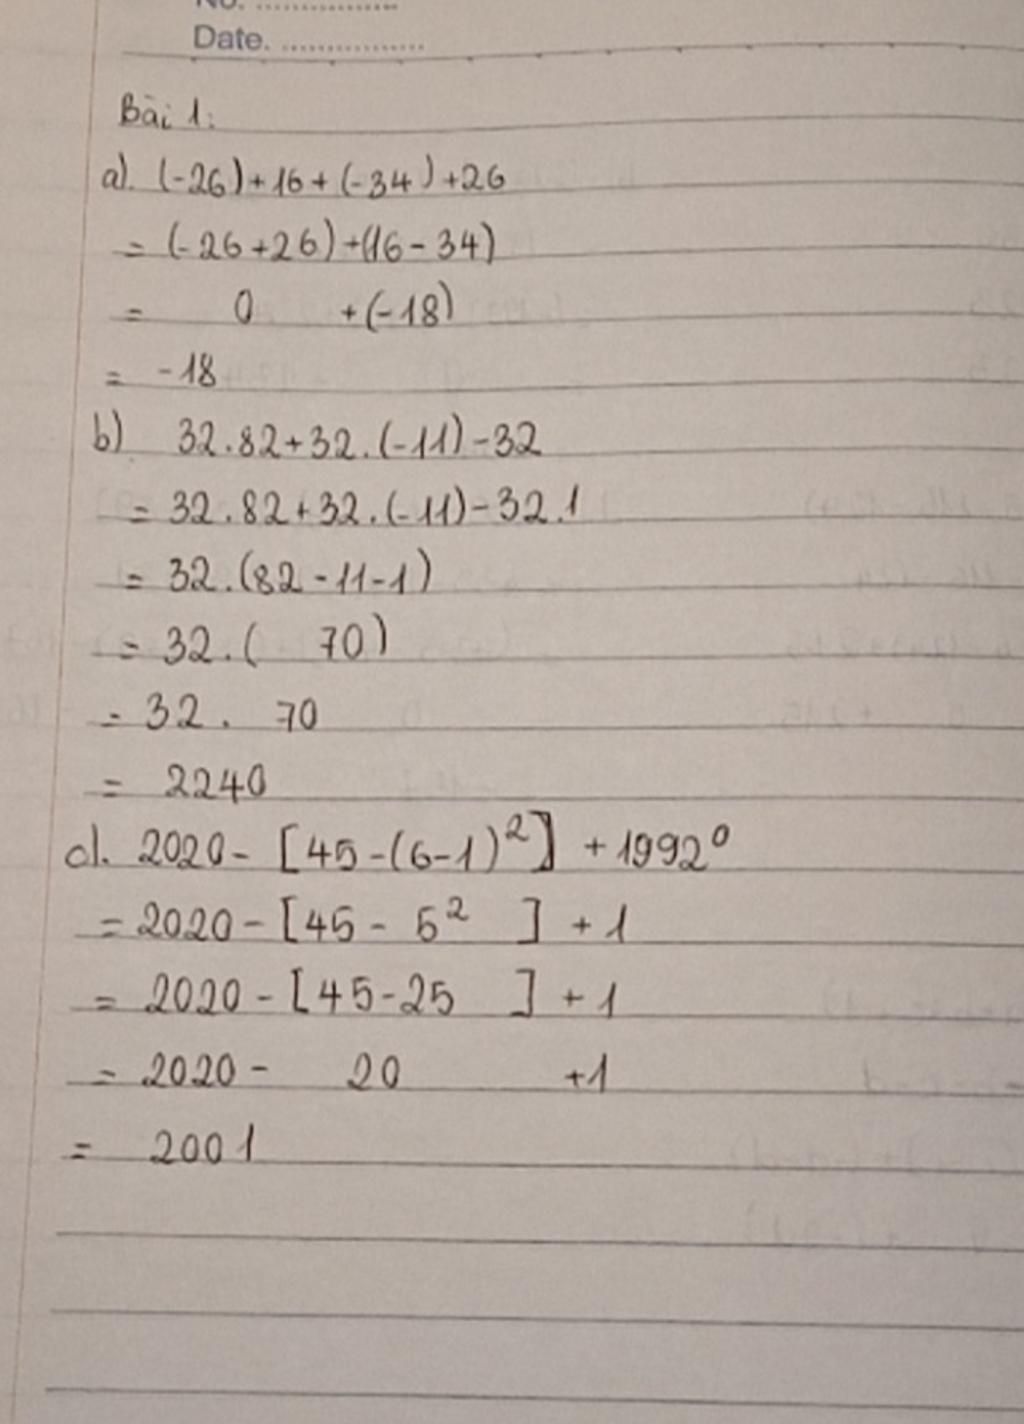 No. ................
Date. ................
Bài 1:
a). (-26)+16+(-34)+26
= (-26+26)+(16-34)
= 0 +(-18)
= -18
b) 32.82+32.(-11)-32
= 32.82+32.(-11)-32.1
= 32.(82-11-1)
= 32.( 70)
= 32. 70
= 2240
c). 2020- [45-(6-1)²] +1992⁰
= 2020-[45- 5² ] +1
= 2020-[45-25 ] +1
= 2020- 20 +1
= 2001